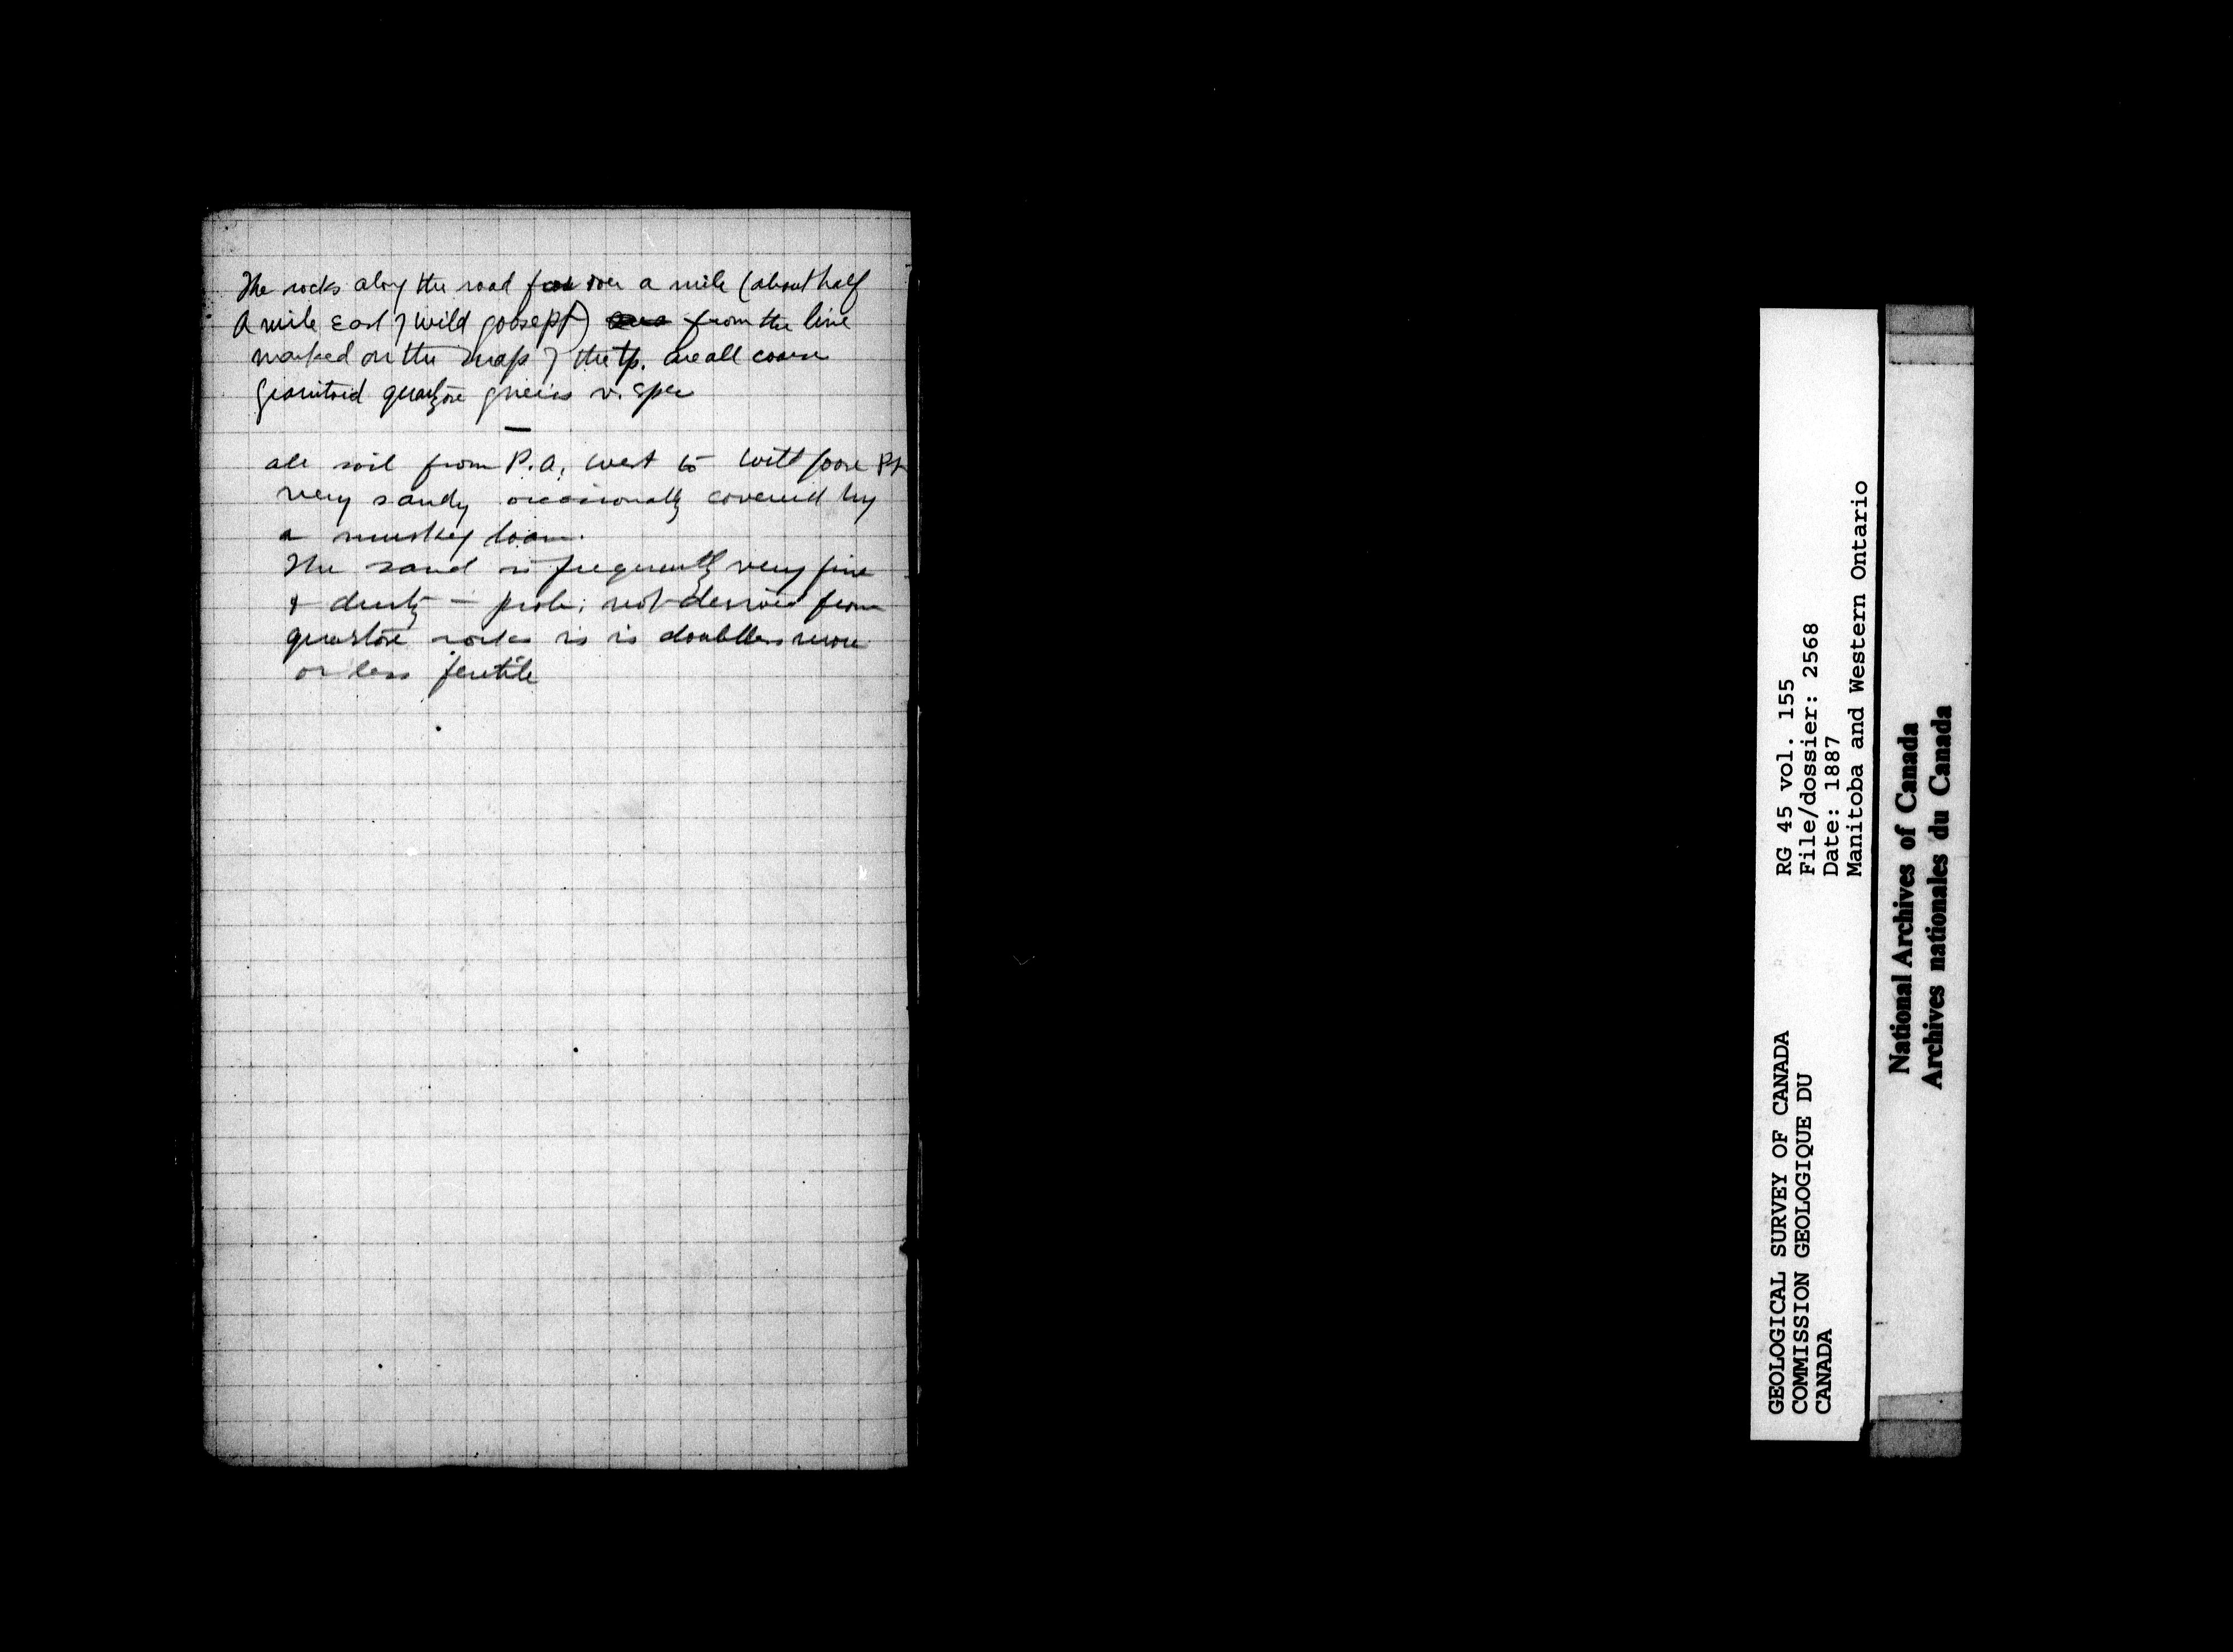 The rocks along the road for over a mile (about half
A mile East of Wild goose pt) from the line
marked on the map of the tp. are all coarse
Granitoid quartzose gneiss v. Spec
—
all soil from P.A. west to Wild Goose Pt
very sandy occasionally covered by
a muskeg loam.
The sand is frequently very fine
& dusty — prob; not derived from
quartzose rocks is is doubtless more
or less fertile
RG 45 vol. 155
File/dossier: 2568
Date: 1887
Manitoba and Western Ontario
GEOLOGICAL SURVEY OF CANADA
COMMISSION GEOLOGIQUE DU
CANADA
National Archives of Canada
Archives nationales du Canada